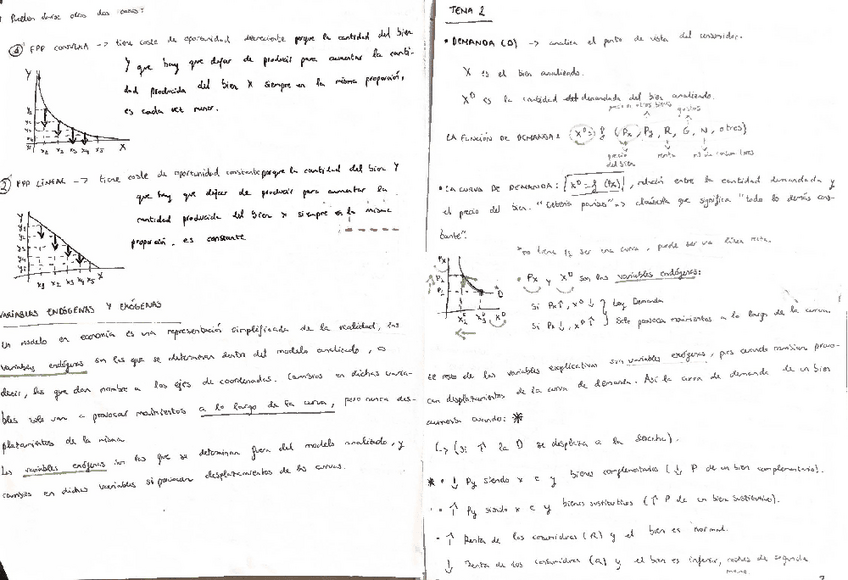 Pueden darse otros dos casos:
① FPP CONVEXA -> tiene coste de oportunidad decreciente porque la cantidad del bien
Y que hay que dejar de producir para aumentar la canti-
dad producida del bien X siempre en la misma proporción,
es cada vez menor.
Y
X
x1 x2 x3 x4 x5
② FPP LINEAL -> tiene coste de oportunidad constante porque la cantidad del bien Y
que hay que dejar de producir para aumentar la
cantidad producida del bien X siempre en la misma
proporción, es constante
X
x1 x2 x3 x4 x5
VARIABLES ENDÓGENAS Y EXÓGENAS
Un modelo en economía es una representación simplificada de la realidad, las
variables endógenas son las que se determinan dentro del modelo analizado, o
decir, las que dan nombre a los ejes de coordenadas. Cambios en dichas varia-
bles solo van a provocar movimientos a lo largo de la curva, pero nunca des-
plazamientos de la misma.
Las variables exógenas son las que se determinan fuera del modelo analizado, y
cambios en dichas variables si provocan desplazamientos de las curvas.
TEMA 2
• DEMANDA (D) -> analiza el punto de vista del consumidor.
X es el bien analizado.
X^D es la cantidad demandada del bien analizado.
precio otros bienes gustos
LA FUNCIÓN DE DEMANDA: X^D = f (Px, Py, R, G, N, otros)
precio del bien
renta
nº de consumidores
• LA CURVA DE DEMANDA: X^D = f (Px), relación entre la cantidad demandada y
el precio del bien. "Ceteris paribus" -> cláusula que significa "todo lo demás cons-
tante".
*no tiene q ser una curva, puede ser una línea recta.
Px
P2
P1
D
X^D
• Px y X^D son las variables endógenas:
Si Px↑, X^D ↓ } Ley Demanda
Si Px↓, X^D ↑ } Solo provoca movimientos a lo largo de la curva
El resto de las variables explicativas son variables exógenas, pues cuando varían provo-
can desplazamientos de la curva de demanda. Así la curva de demanda de un bien
aumenta cuando: *
↳ (si ↑ la D se desplaza a la derecha).
* • ↓ Py siendo x e y bienes complementarios (↓ P de un bien complementario).
• ↑ Py siendo x e y bienes sustitutivos (↑ P de un bien sustitutivo).
• ↑ Renta de los consumidores (R) y el bien es normal.
↓ Renta de los consumidores (R) y el bien es inferior, coches de segunda
mano.